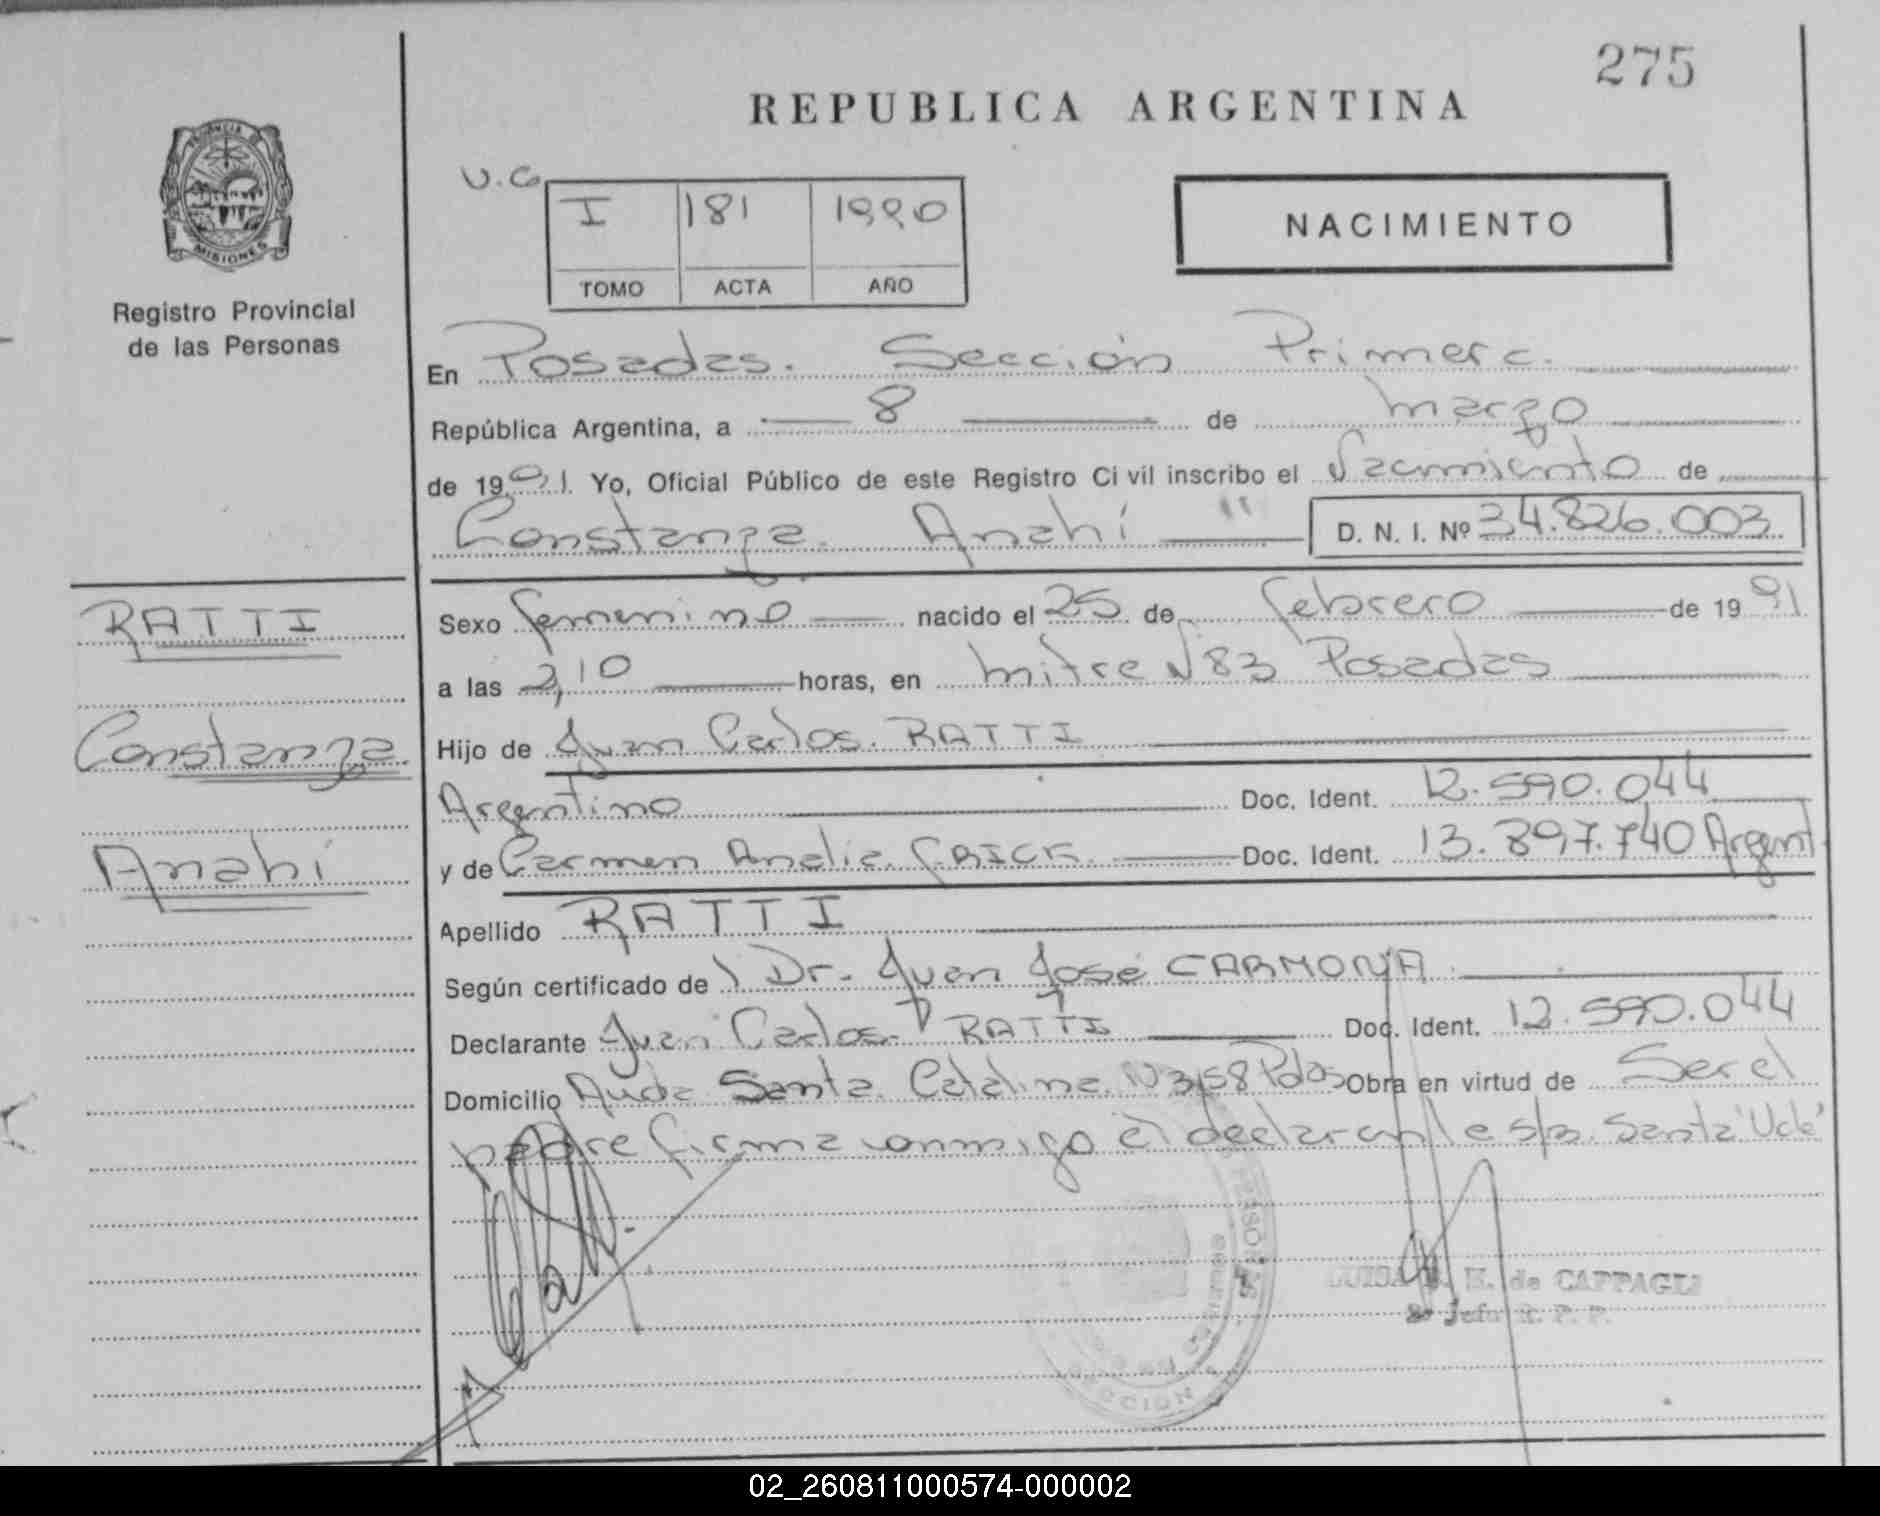 275
REPUBLICA ARGENTINA
PROVINCIA DE
MISIONES
Registro Provincial
de las Personas
I 181 1990
TOMO ACTA AÑO
NACIMIENTO
En Posadas. Sección Primera.
República Argentina, a 8 de marzo
de 1991. Yo, Oficial Público de este Registro Civil inscribo el Nacimiento de
Constanza Anahí D. N. I. Nº 34.826.003
RATTI
Constanza
Anahí
Sexo femenino nacido el 25 de febrero de 1991
a las 2,10 horas, en mitre N 83 Posadas
Hijo de Juan Carlos RATTI
Argentino Doc. Ident. 12.590.044
y de Carmen Analia Doc. Ident. 13.897.740 Argent
Apellido RATTI
Según certificado de Dr. Juan José CARMONA
Declarante Juan Carlos RATTI Doc. Ident. 12.590.044
Domicilio Avda Santa Catalina N 3158 Pdas Obra en virtud de Ser el
padre firma conmigo el declarante s/b. Santa
de CAPPAGLI
2º Jefe R. P. P.
02_260811000574-000002